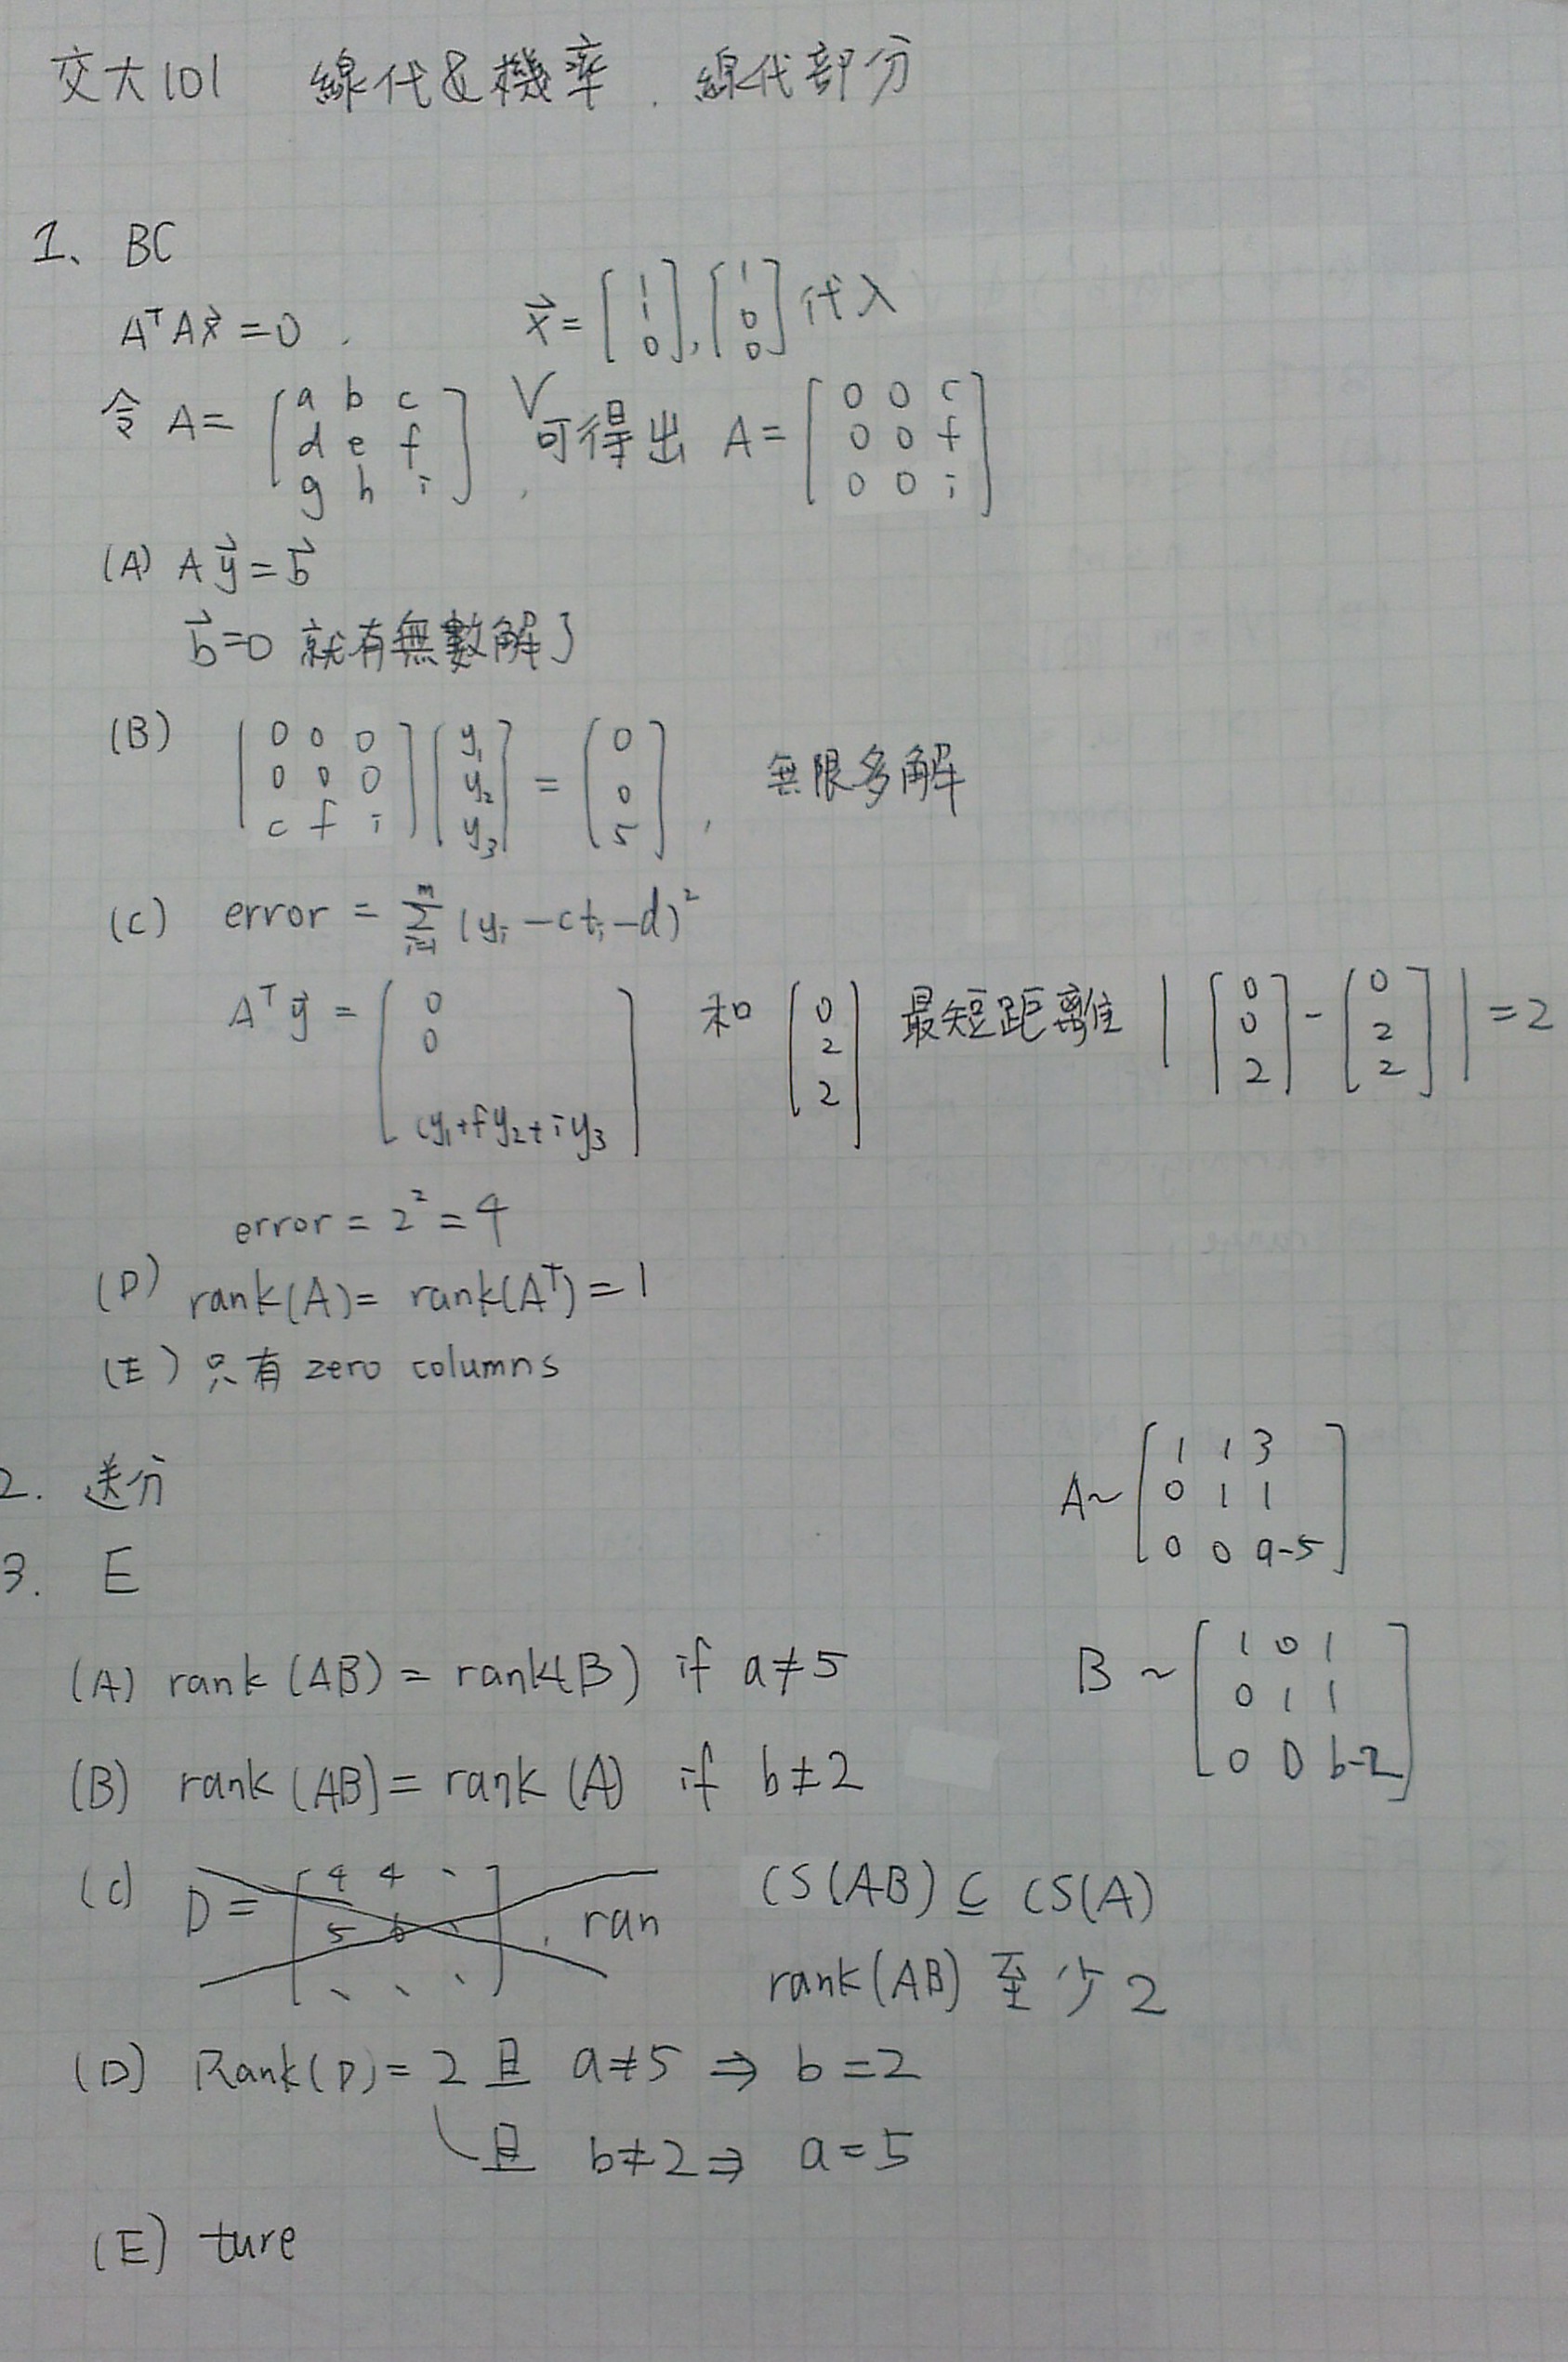 交大101 線代&機率. 線代部分
1、 BC
AᵀAx⃗ = 0 . x⃗ = [1 1 0], [1 0 0] 代入
令 A = [a b c; d e f; g h i] , 可得出 A = [0 0 c; 0 0 f; 0 0 i]
(A) Ay⃗ = b⃗
b⃗=0 就有無數解了
(B) [0 0 0; 0 0 0; c f i] [y₁ y₂ y₃] = [0 0 5] , 無限多解
(C) error = Σᵢ₌₁ᵐ (yᵢ - ctᵢ - d)²
Aᵀy⃗ = [0 0 cy₁+fy₂+iy₃] 和 [0 2 2] 最短距離 | [0 0 2] - [0 2 2] | = 2
error = 2² = 4
(D) rank(A) = rank(Aᵀ) = 1
(E) 只有 zero columns
2. 送分
A ~ [1 1 3; 0 1 1; 0 0 a-5]
3. E
(A) rank (AB) = rank(B) if a≠5
B ~ [1 0 1; 0 1 1; 0 0 b-2]
(B) rank (AB) = rank (A) if b≠2
(C) D = [4 4 ; 5 6] . ran CS(AB) ⊆ CS(A)
rank(AB) 至少 2
(D) Rank(D) = 2 且 a≠5 ⇒ b=2
且 b≠2 ⇒ a=5
(E) ture